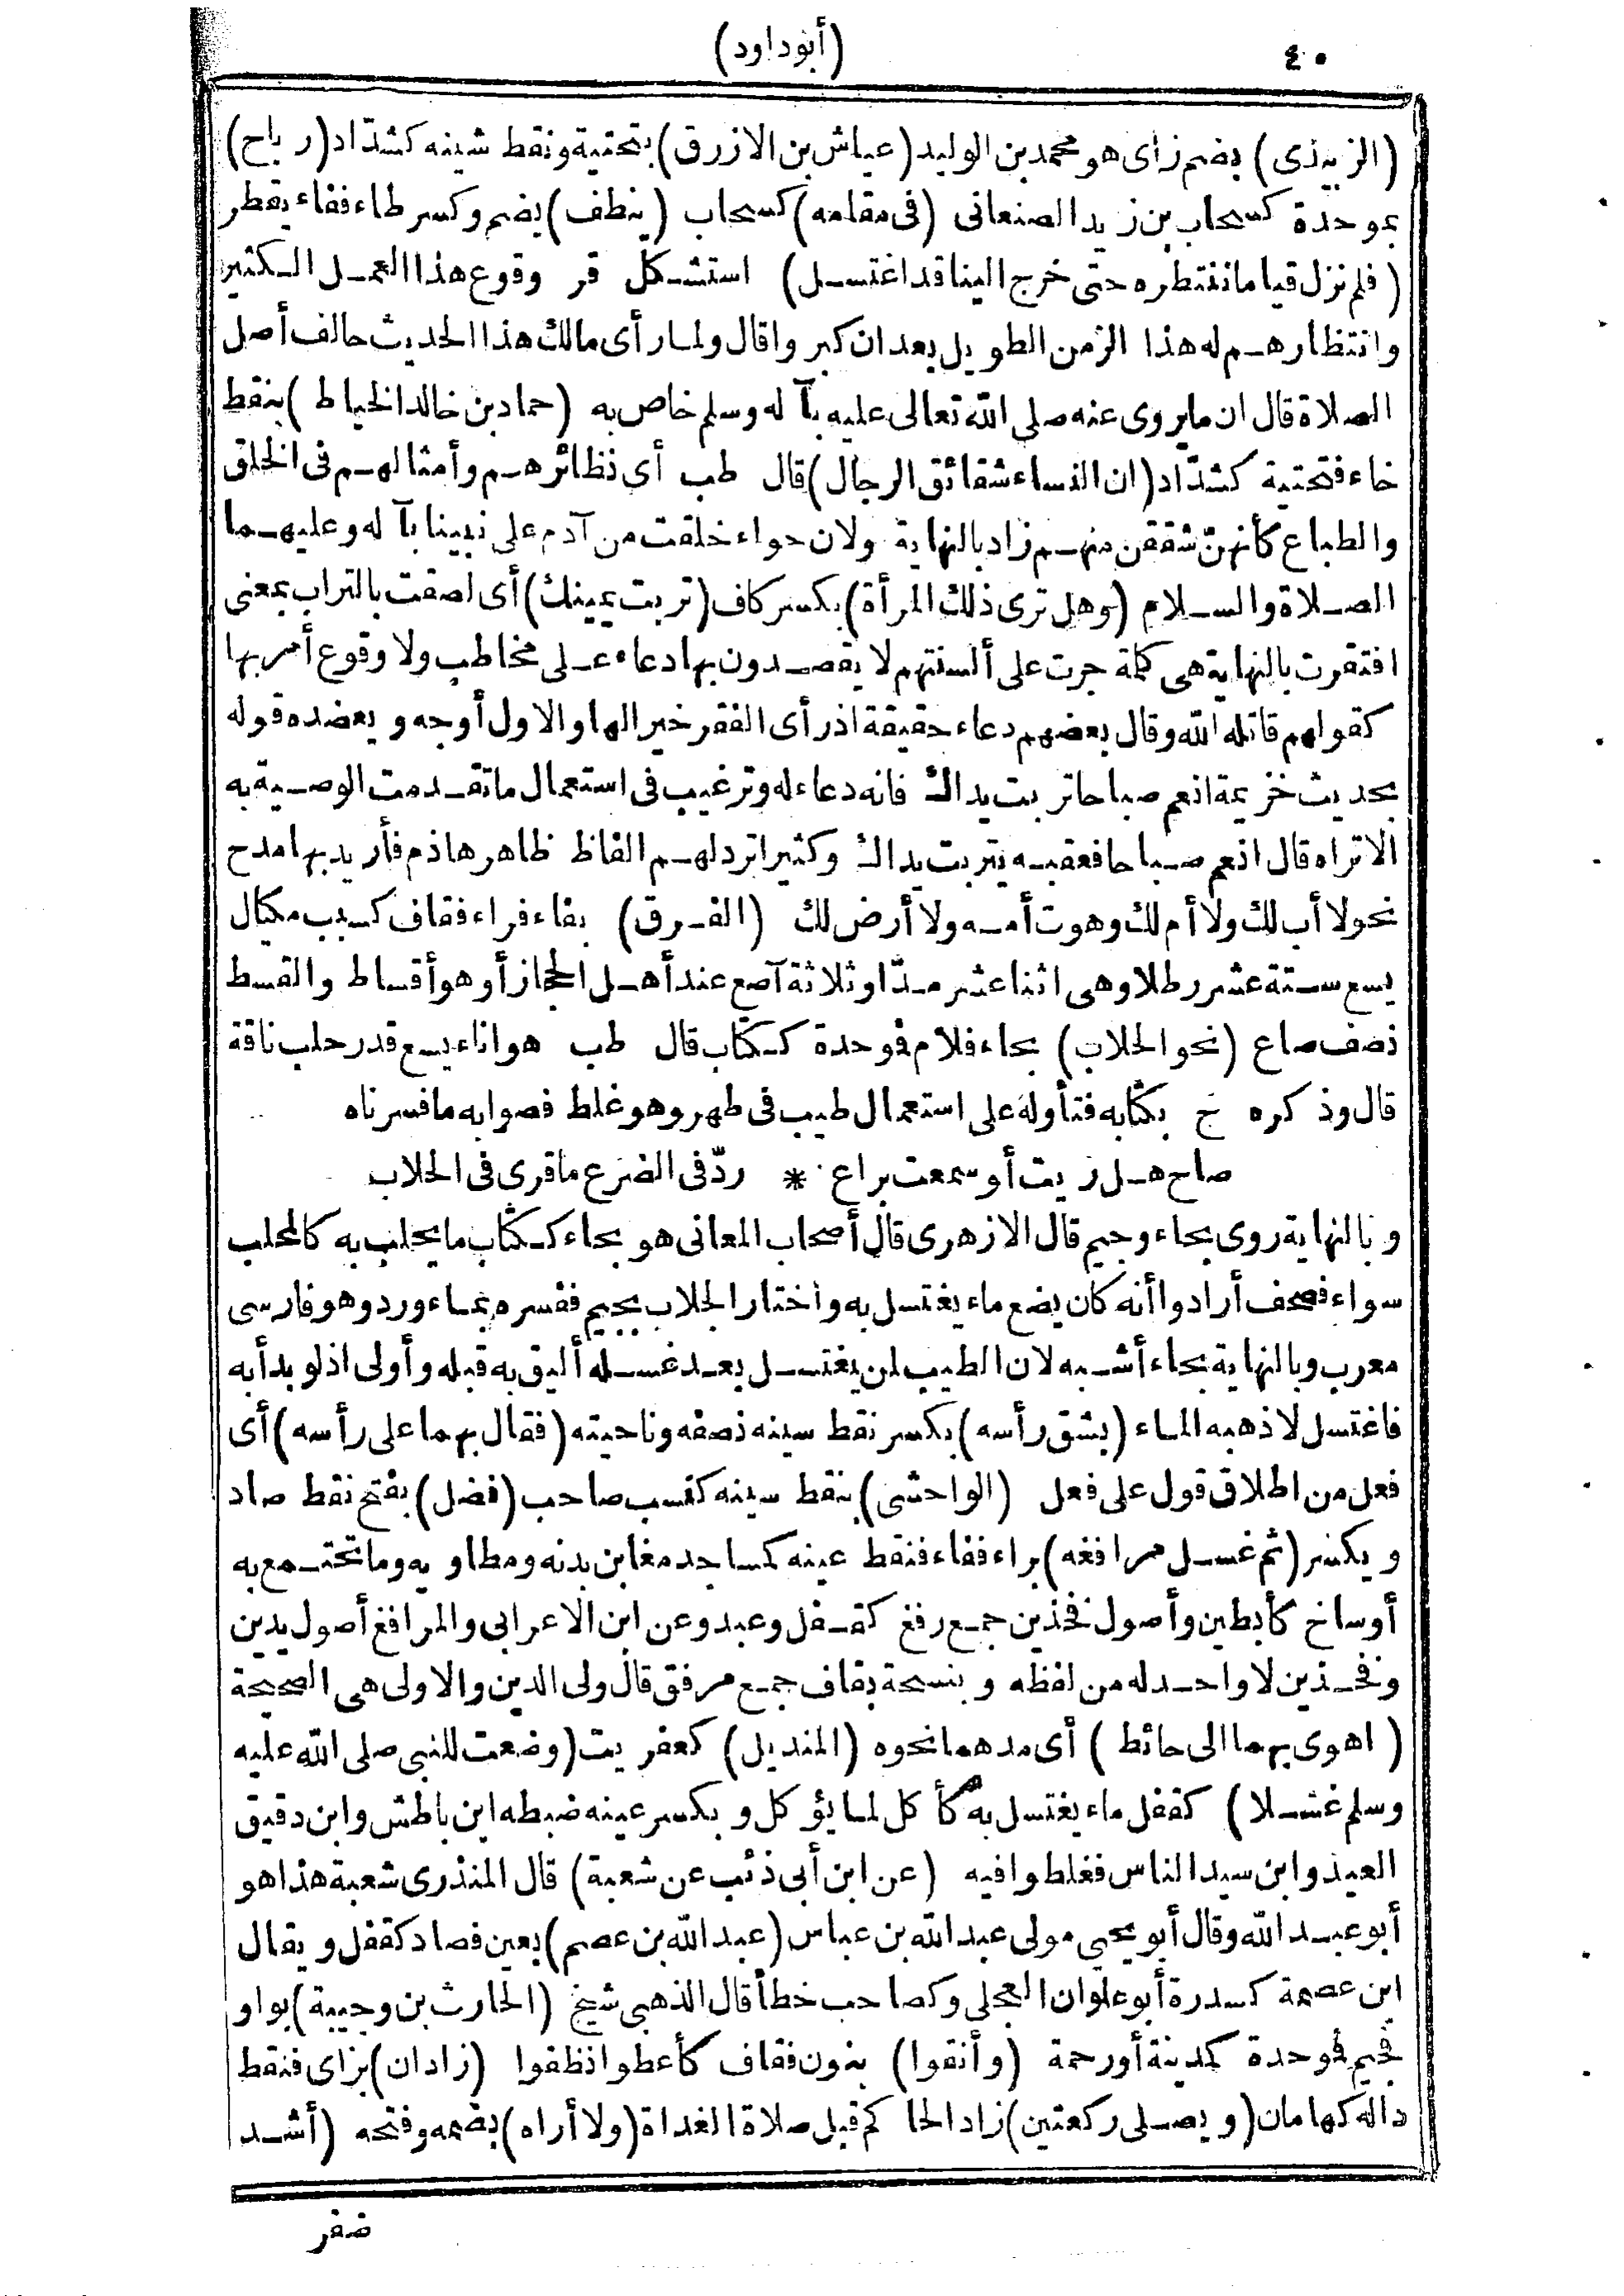 ٤٠
(أبوداود)
(الزبيدى) بضم زاى هو محمد بن الوليد (عياش بن الازرق) بتحتية ونقط شينه كشداد (رباح)
بموحدة كسحاب بن زيد الصنعانى (فى مقامه) كسحاب (ينطف) بضم وكسر طاء ففاء يقطر
(فلم نزل قياما ننتظره حتى خرج الينا قد اغتسل) استشكل قر وقوع هذا العمل الكثير
وانتظارهم له هذا الزمن الطويل بعد ان كبروا قال ولما رأى مالك هذا الحديث خالف أصل
الصلاة قال ان مايروى عنه صلى الله تعالى عليه بآله وسلم خاص به (حماد بن خالد الخياط) بنقط
خاء فتحتية كشداد (ان النساء شقائق الرجال) قال طب أى نظائرهم وأمثالهم فى الخلق
والطباع كأنهنّ شققن منهم زاد بالنهاية ولان حواء خلقت من آدم على نبينا بآله وعليهما
الصلاة والسلام (وهل ترى ذلك المرأة) بكسر كاف (تربت يمينك) أى لصقت بالتراب بمعنى
افتقرت بالنهاية هى كلمة جرت على ألسنتهم لا يقصدون بها دعاء على مخاطب ولا وقوع أمر بها
كقولهم قاتله الله وقال بعضهم دعاء حقيقة اذ رأى الفقر خير الها والاول أوجه ويعضده قوله
بحديث خزيمة انعم صباحا تربت يداك فانه دعاء له وترغيب فى استعمال ما تقدمت الوصية به
الا تراه قال انعم صباحا فعقبه بتربت يداك وكثيرا ترد لهم الفاظ ظاهرها ذم فأريد بها مدح
نحو لا أب لك ولا أم لك وهوت أمه ولا أرض لك (الفرق) بفاء فراء فقاف كسبب مكيال
يسع ستة عشر رطلا وهى اثنا عشر مدّا وثلاثة آصع عند أهل الحجاز أو هو أقساط والقسط
نصف صاع (نحو الحلاب) بحاء فلام فوحدة ككتاب قال طب هو اناء يسع قدر حلب ناقة
قال وذكره خ بكتابه فتأوله على استعمال طيب فى طهر وهو غلط فصوابه ما فسرناه
صاح هل ريت أو سمعت براع * ردّ فى الضرع ماقرى فى الحلاب
وبالنهاية روى بحاء وجيم قال الازهرى قال أصحاب المعانى هو بحاء ككتاب ما يحلب به كالمحلب
سواء فصحف أرادوا أنه كان يضع ماء يغتسل به واختار الجلاب بجيم ففسره بماء ورد وهو فارسى
معرب وبالنهاية بحاء أشبه لان الطيب لمن يغتسل بعد غسله أليق به قبله وأولى اذ لو بدأ به
فاغتسل لاذهبه الماء (بشق رأسه) بكسر نقط سينه نصفه وناحيته (فقال بهما على رأسه) أى
فعل من اطلاق قول على فعل (الواحشى) بنقط سينه كنسب صاحب (فضل) بفتح نقط صاد
ويكسر (ثم غسل مرافغه) براء ففاء فنقط عينه كمساجد مغابن بدنه ومطاويه وما تجتمع به
أوساخ كأبطين وأصول فخذين جمع رفغ كقفل وعبد وعن ابن الاعرابى والمرافغ أصول يدين
وفخذين لا واحد له من لفظه وبنسخة بقاف جمع مرفق قال ولى الدين والاولى هى الصحيحة
(اهوى بهما الى حائط) أى مدهما نحوه (المنديل) كعفريت (وضعت للنبى صلى الله عليه
وسلم غسلا) كقفل ماء يغتسل به كأكل لما يؤكل وبكسر عينه ضبطه ابن باطش وابن دقيق
العيد وابن سيد الناس فغلطوا فيه (عن ابن أبى ذئب عن شعبة) قال المنذرى شعبة هذا هو
أبو عبد الله وقال أبو يحيى مولى عبد الله بن عباس (عبد الله بن عصم) بعين فصاد كقفل ويقال
ابن عصمة كسدرة أبو علوان العجلى وكصاحب خطأ قال الذهبى شيخ (الحارث بن وجيبة) بواو
فجيم فوحدة كمدينة أو رحمة (وأنقوا) بنون فقاف كأعطوا نظفوا (زادان) بزاى فنقط
داله كهامان (ويصلى ركعتين) زاد الحاكم قبل صلاة الغداة (ولا أراه) بضمه وفتحه (أشد
ضفر